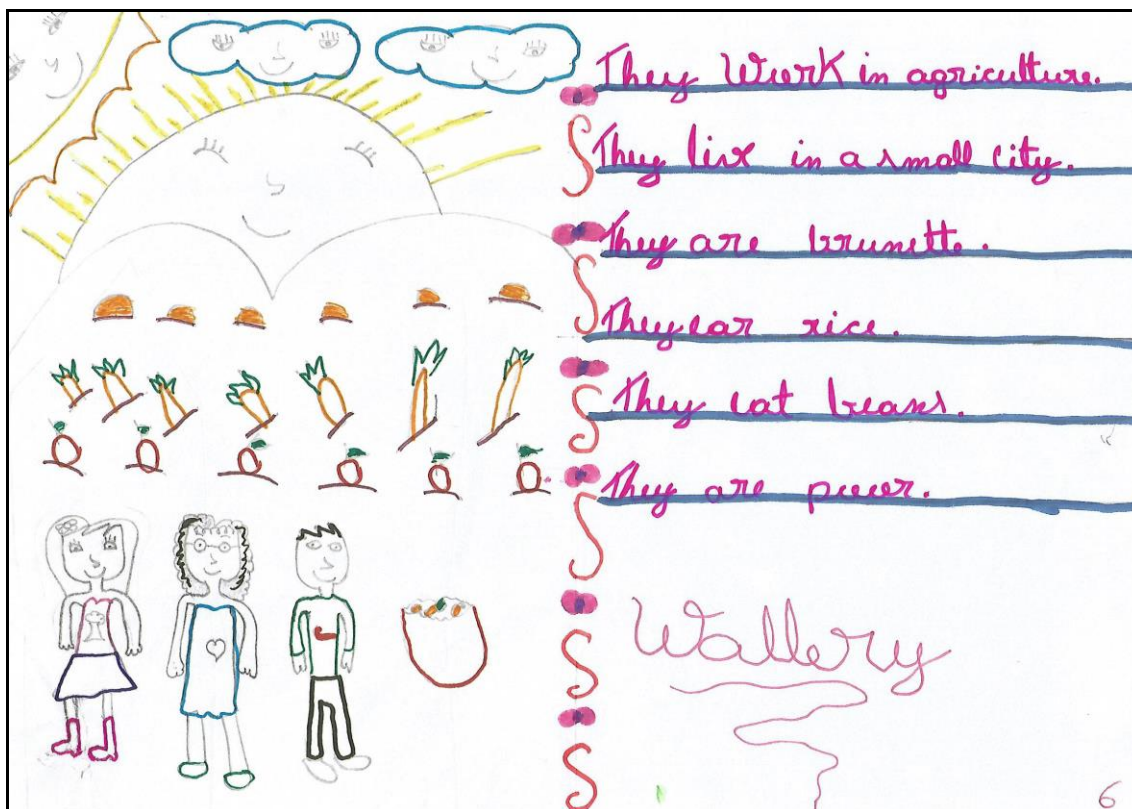 They Work in agriculture.
They live in a small city.
They are brunette.
They ear rice.
They eat beans.
They are poor.
Wallery
6